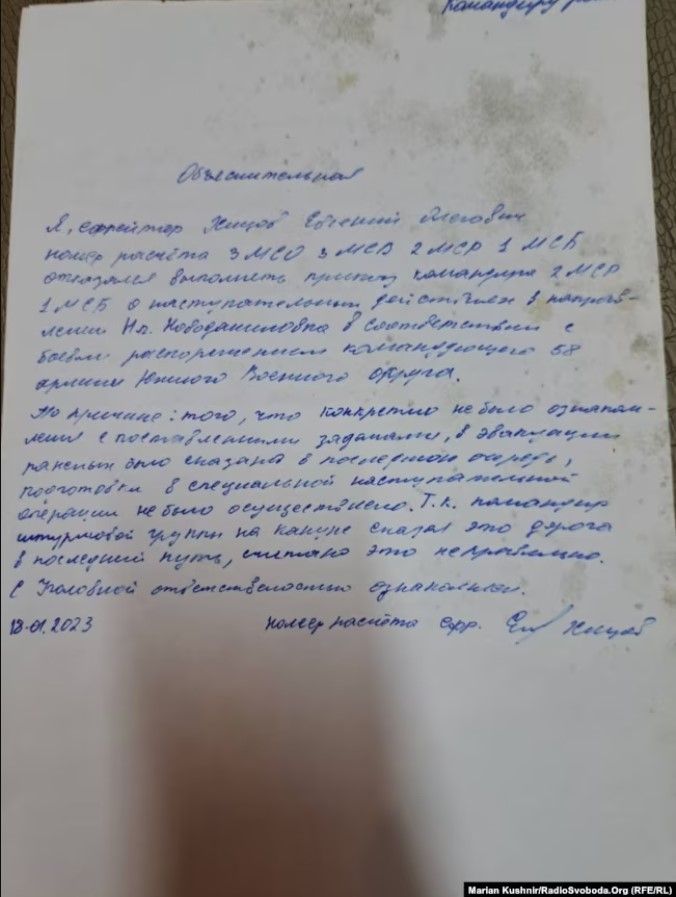 Командиру
Объяснительная
Я, ефрейтор Хищов Евгений Олегович
номер расчёта 3 МСО 3 МСВ 2 МСР 1 МСБ
отказался выполнять приказ командира 2 МСР
1 МСБ о наступательных действиях в направ-
лении Нп. Новоданиловка в соответствии с
боевым распоряжением командующего 58
армии Южного Военного округа.
По причине: того, что конкретно не было ознаком-
ления с поставленными задачами, в эвакуации
раненых было сказано в последнюю очередь,
подготовки в специальной наступательной
операции не было осуществлено. Т.к. командир
штурмовой группы на кануне сказал это дорога
в последний путь, считаю это не правильно.
С Уголовной ответственостью ознакомлен.
18.01.2023 номер расчёта ефр. Хищов
Marian Kushnir/RadioSvoboda.Org (RFE/RL)